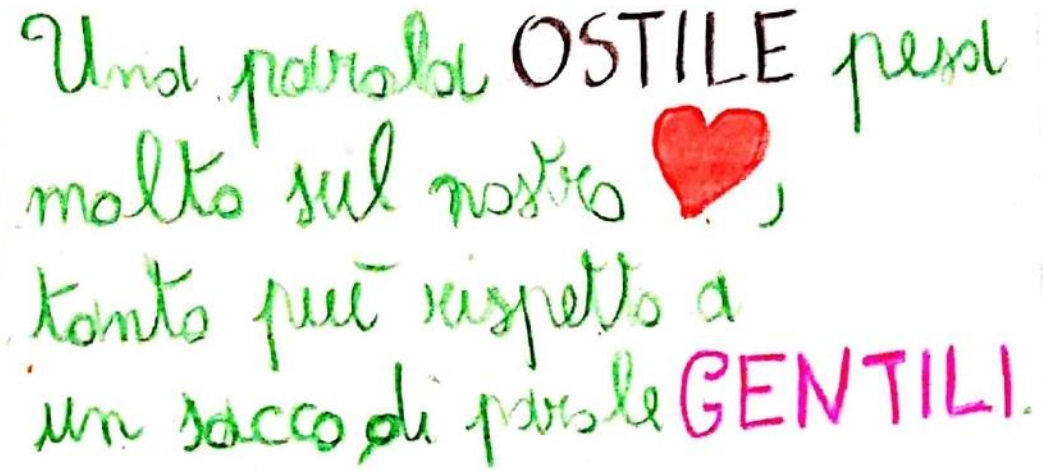 Una parola OSTILE pesa
molto sul nostro ❤,
tanto più rispetto a
un sacco di parole GENTILI.